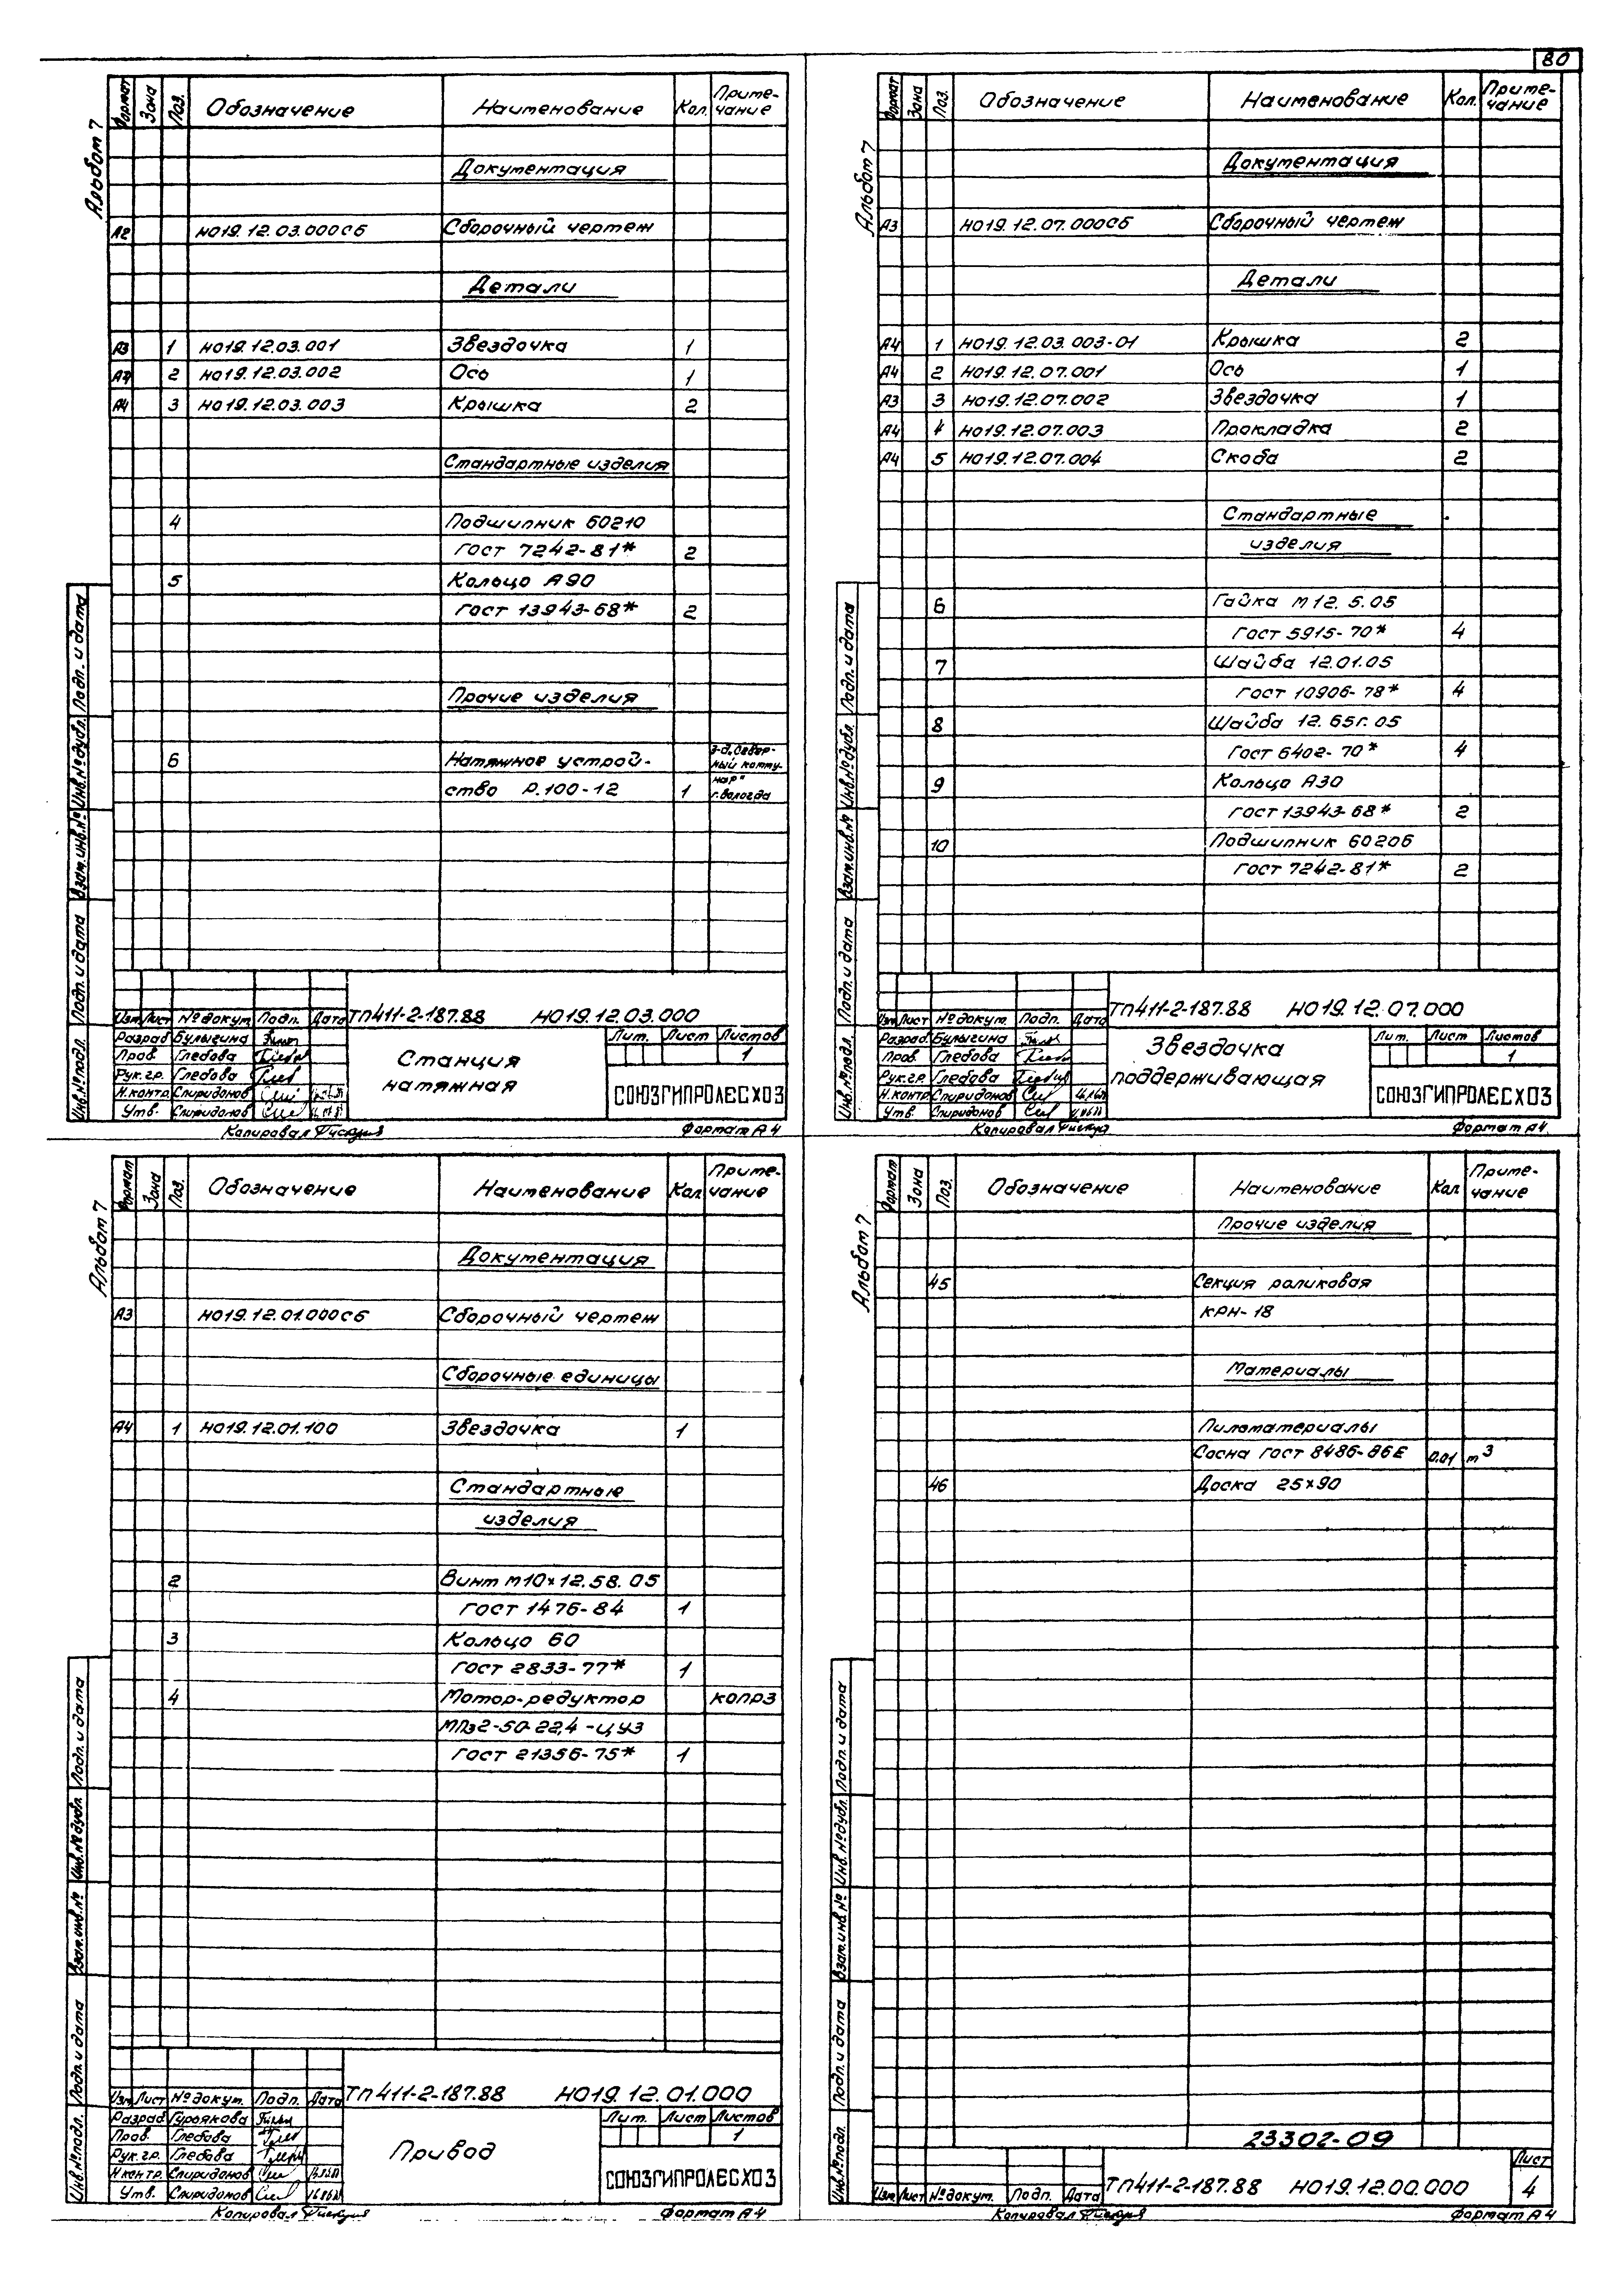 80
Альбом 7
Формат Зона Поз. Обозначение Наименование Кол. Приме-
чание
Документация
А2 НО19.12.03.000СБ Сборочный чертеж
Детали
А3 1 НО19.12.03.001 Звездочка 1
2 НО19.12.03.002 Ось 1
А4 3 НО19.12.03.003 Крышка 2
Стандартные изделия
4 Подшипник 60210
ГОСТ 7242-81* 2
5 Кольцо А90
ГОСТ 13943-68* 2
Прочие изделия
6 Натяжное устрой- з-д„Север-
ный комму-
нар"
ство Р.100-12 1 г.Вологда
Инв.№подл. Подп. и дата Взам.инв.№ Инв.№дубл. Подп. и дата
ТП411-2-187.88 НО19.12.03.000
Изм Лист №докум. Подп. Дата
Разраб Булыгина
Пров. Глебова
Рук.гр. Глебова
Н.контр. Спиридонов
Утв. Спиридонов
Станция
натяжная
Лит. Лист Листов
1
СОЮЗГИПРОЛЕСХОЗ
Копировал Формат А4
Альбом 7
Формат Зона Поз. Обозначение Наименование Кол. Приме-
чание
Документация
А3 НО19.12.07.000СБ Сборочный чертеж
Детали
А4 1 НО19.12.03.003-01 Крышка 2
А4 2 НО19.12.07.001 Ось 1
А3 3 НО19.12.07.002 Звездочка 1
А4 4 НО19.12.07.003 Прокладка 2
А4 5 НО19.12.07.004 Скоба 2
Стандартные
изделия
6 Гайка М12.5.05
ГОСТ 5915-70* 4
7 Шайба 12.01.05
ГОСТ 10906-78* 4
8 Шайба 12.65Г.05
ГОСТ 6402-70* 4
9 Кольцо А30
ГОСТ 13943-68* 2
10 Подшипник 60206
ГОСТ 7242-81* 2
Инв.№подл. Подп. и дата Взам.инв.№ Инв.№дубл. Подп. и дата
ТП411-2-187.88 НО19.12.07.000
Изм Лист №докум. Подп. Дата
Разраб Булыгина
Пров. Глебова
Рук.гр. Глебова
Н.контр Спиридонов
Утв. Спиридонов
Звездочка
поддерживающая
Лит. Лист Листов
1
СОЮЗГИПРОЛЕСХОЗ
Копировал Формат А4
Альбом 7
Формат Зона Поз. Обозначение Наименование Кол Приме-
чание
Документация
А3 НО19.12.01.000СБ Сборочный чертеж
Сборочные единицы
А4 1 НО19.12.01.100 Звездочка 1
Стандартные
изделия
2 Винт М10×12.58.05
ГОСТ 1476-84 1
3 Кольцо 60
ГОСТ 2833-77* 1
4 Мотор-редуктор
МПз2-50-22,4-ЦУ3
ГОСТ 21356-75* 1
Инв.№подл. Подп. и дата Взам.инв.№ Инв.№дубл. Подп. и дата
ТП411-2-187.88 НО19.12.01.000
Изм Лист №докум. Подп. Дата
Разраб Гурьякова
Пров. Глебова
Рук.гр. Глебова
Н.контр. Спиридонов
Утв. Спиридонов
Привод
Лит. Лист Листов
1
СОЮЗГИПРОЛЕСХОЗ
Копировал Формат А4
Альбом 7
Формат Зона Поз. Обозначение Наименование Кол Приме-
чание
Прочие изделия
45 Секция роликовая
КРН-18
Материалы
Пиломатериалы
Сосна ГОСТ 8486-86Е 0,01 м3
46 Доска 25×90
Инв.№подл. Подп. и дата Взам.инв.№ Инв.№дубл. Подп. и дата
23302-09
Изм Лист №докум. Подп. Дата
ТП411-2-187.88 НО19.12.00.000
Лист
4
Копировал Формат А4